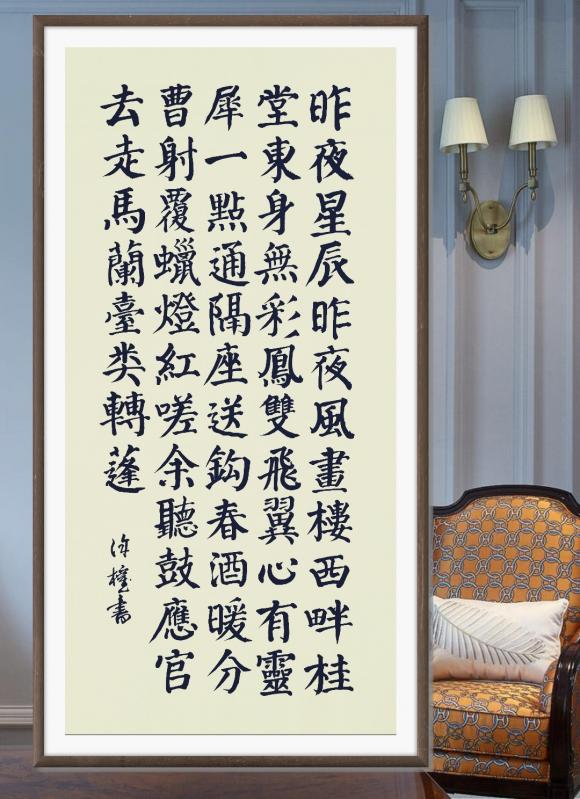 昨夜星辰昨夜風畫樓西畔桂
堂東身無彩鳳雙飛翼心有靈
犀一點通隔座送鈎春酒暖分
曹射覆蠟燈紅嗟余聽鼓應官
去走馬蘭臺类轉蓬
書